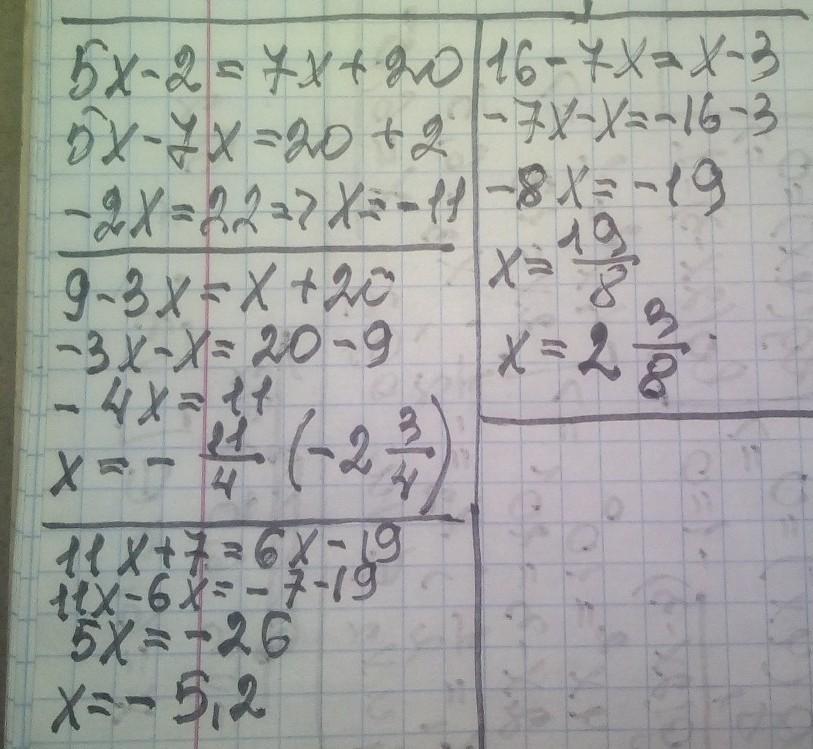 5x-2=7x+20
5x-7x=20+2
-2x=22=>x=-11
9-3x=x+20
-3x-x=20-9
-4x=11
x=-11/4 (-2 3/4)
11x+7=6x-19
11x-6x=-7-19
5x=-26
x=-5,2
16-7x=x-3
-7x-x=-16-3
-8x=-19
x=19/8
x=2 3/8